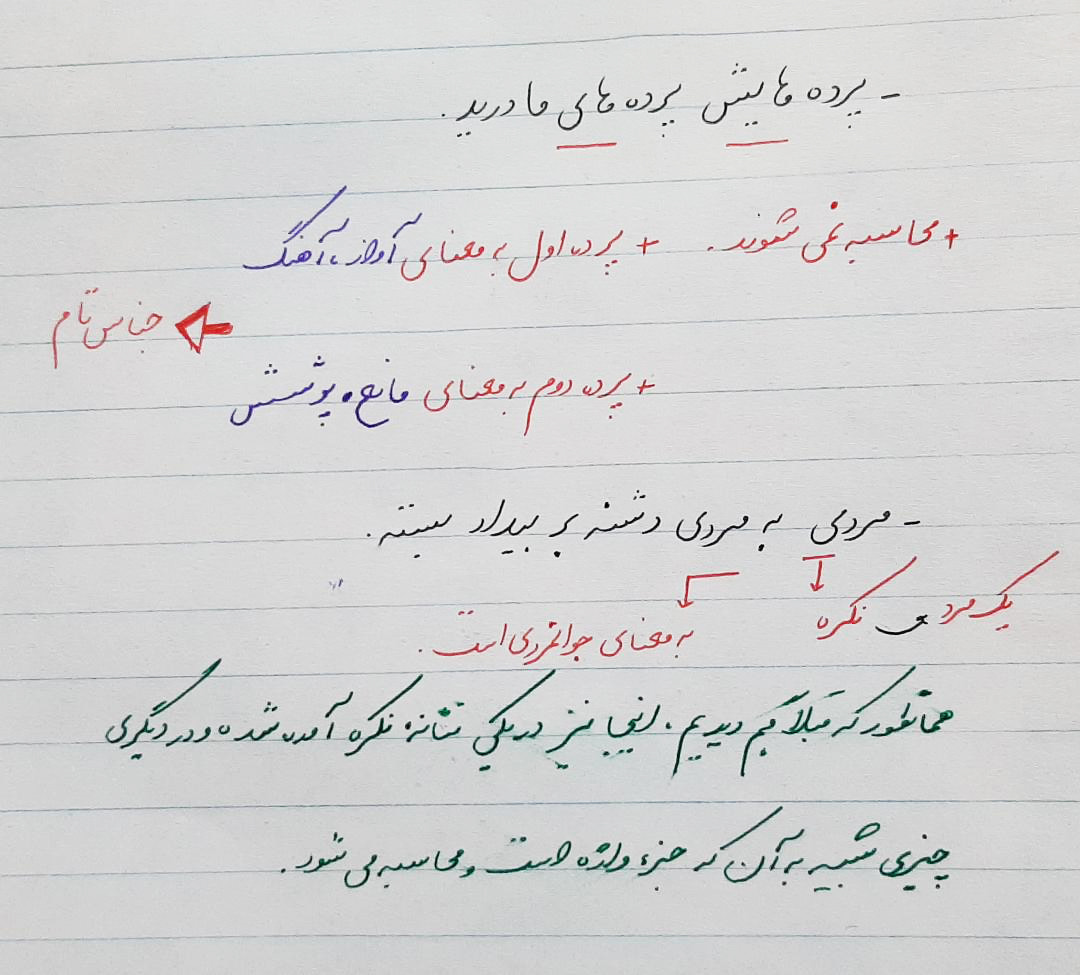 - پرده هایش پرده های ما درید.
+ محاسبه نمی شوند. + پرده اول به معنای آواز، آهنگ
جناس تام
+ پرده دوم به معنای مانع، پوشش
- مردی به مردی دشنه بر بیداد بسته.
یک مرد ی نکره
به معنای جوانمردی است.
همانطور که قبلاً هم دیدیم. اینجا نیز در یکی نشانهٔ نکره آمده شده و در دیگری
چیزی شبیه به آن که جزء واژه است و محاسبه می شود.